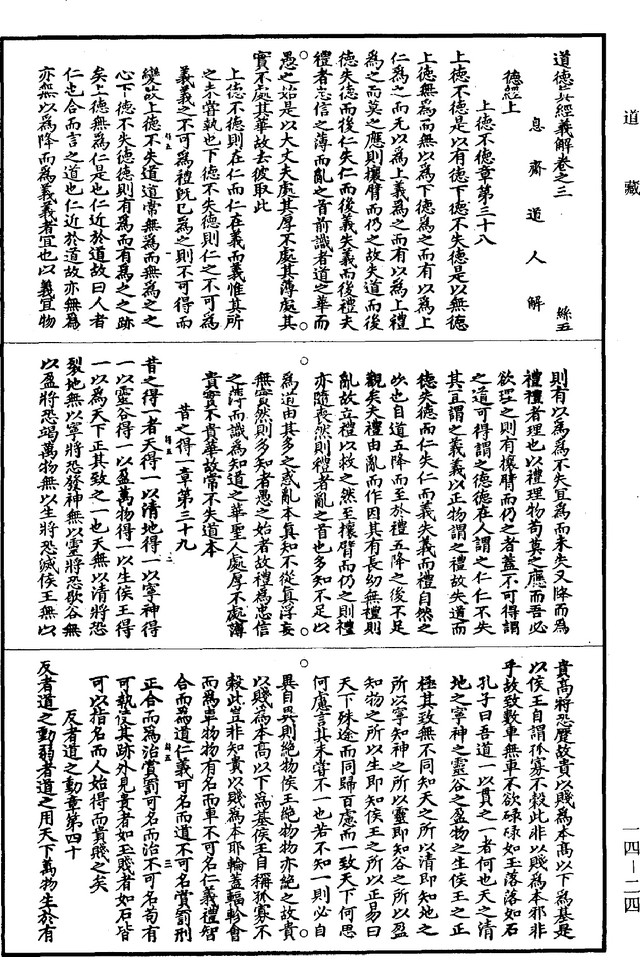 道藏
道德真經義解卷之三
絲五
息齋道人解
德經上
上德不德章第三十八
上德不德是以有德下德不失德是以無德
上德無為而無以為下德為之而有以為上
仁為之而无以為上義為之而有以為上禮
為之而莫之應則攘臂而仍之故失道而後
德失德而後仁失仁而後義失義而後禮夫
禮者忠信之薄而亂之首前識者道之華而
愚之始是以大丈夫處其厚不處其薄處其
實不處其華故去彼取此
上德不德則在仁而仁在義而義惟其所
之未嘗執也下德不失德則仁之不可為
義義之不可為禮既已為之則不可得而
變故上德不失道道常無為而無為之之
心下德不失德德則有為而有為之之跡
矣上德無為仁是也仁近於道故曰人者
仁也合而言之道也仁近於道故亦無為
亦無以為降而為義義者宜也以義宜物
則有以為為不失宜為而未失又降而為
禮禮者理也以禮理物苟莫之應而吾必
欲理之則有攘臂而仍之者蓋不可得謂
之道可得謂之德德在人謂之仁仁不失
其宜謂之義義以正物謂之禮故失道而
德失德而仁失仁而義失義而禮自然之
次也自道五降而至於禮五降之後不足
觀矣夫禮由亂而作因其有長幼無禮則
亂故立禮以救之然至攘臂而仍之則禮
亦隨喪然則禮者亂之首也多知不足以
為道由其多之惑亂本真知不從真浮妄
無實然則多知者愚之始者故禮為忠信
之薄而識為知道之華聖人處厚不處薄
貴實不貴華故常不失道本
昔之得一章第三十九
昔之得一者天得一以清地得一以寧神得
一以靈谷得一以盈萬物得一以生侯王得
一以為天下正其致之一也天無以清將恐
裂地無以寧將恐發神無以靈將恐歇谷無
以盈將恐竭萬物無以生將恐滅侯王無以
貴高將恐蹷故貴以賤為本高以下為基是
以侯王自謂孤寡不穀此非以賤為本邪非
乎故致數車無車不欲碌碌如玉落落如石
孔子曰吾道一以貫之一者何也天之清
地之寧神之靈谷之盈物之生侯王之正
極其致無不同知天之所以清即知地之
所以寧知神之所以靈即知谷之所以盈
知物之所以生即知侯王之所以正易曰
天下殊途而同歸百慮而一致天下何思
何慮言其未嘗不一也若不知一則必自
異自異則絕物侯王絕物物亦絕之故貴
以賤為本高以下為基侯王自稱孤寡不
穀此豈非知貴以賤為本耶輪蓋輻軫會
而為車物物有名而車不可名仁義禮智
合而為道仁義可名而道不可名賞罰刑
正合而為治賞罰可名而治不可名苟有
可執從其跡外見貴者如玉賤者如石皆
可以指名而人始得而貴賤之矣
反者道之動章第四十
反者道之動弱者道之用天下萬物生於有
一四—二四